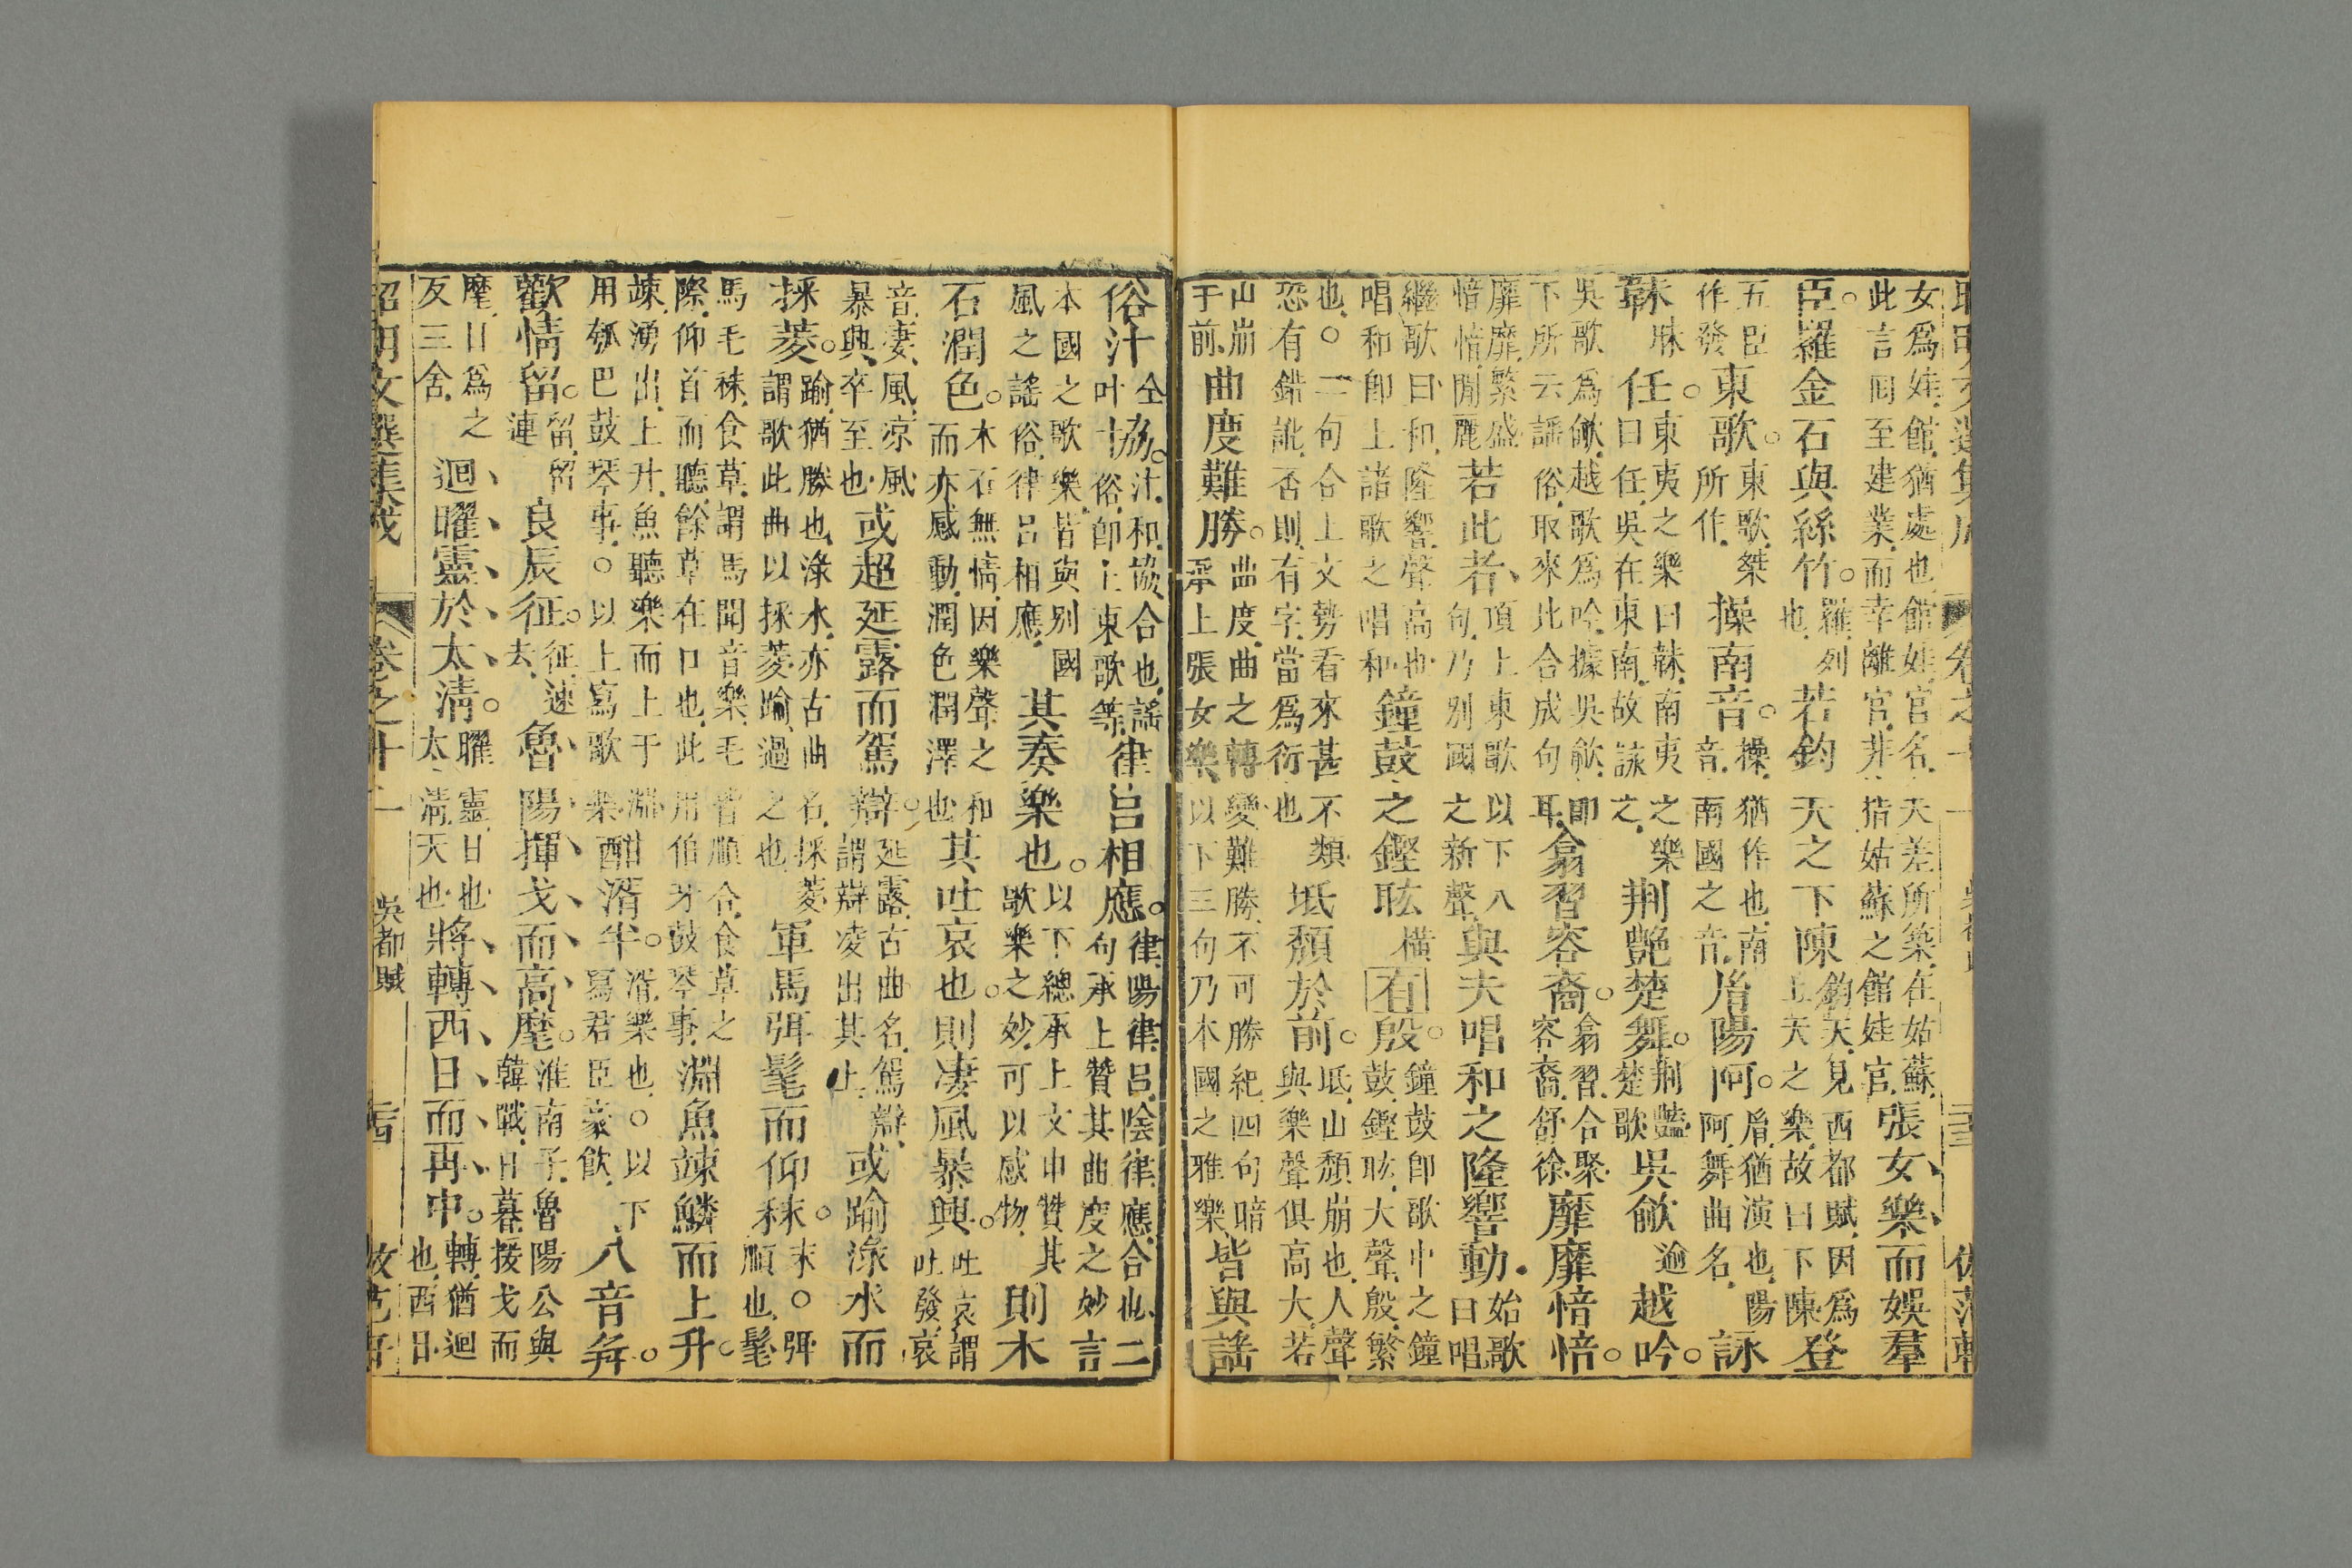 女爲娃館猶處也館娃宮名夫差所築在姑蘇
此言囘至建業而幸離宮非指姑蘇之館娃宮張女樂而娛羣
臣羅金石與絲竹羅列也若鈞天之下陳鈞天見西都賦因爲上天之樂故曰下陳登
東歌東歌桀所作五臣作發操南音操猶作也南音南國之音胤陽阿胤猶演也陽阿舞曲名詠
韎昧任東夷之樂曰韎南夷之樂曰任吳在東南故詠之荆艷楚舞荆艷楚歌吳歈逾越吟
吳歌爲歈越歌爲吟據吳歈卽下所云謡俗取來此合成句耳翕習容裔翕習合聚容裔舒徐靡靡愔愔
靡靡繁盛愔愔閒麗若此者頂上東歌以下八句乃別國之新聲與夫唱和之隆響動始歌曰唱
繼歌曰和隆響聲高也唱和卽上諸歌之唱和鐘鼓之鏗耾橫有殷鐘鼓卽歌中之鐘鼓鏗耾大聲殷繁
也○二句合上文勢看來甚不類恐有錯訛否則有字當爲衍也坻頹於前坻山頹崩也人聲與樂聲俱高大若
山崩于前曲度難勝曲度曲之轉變難勝不可勝紀四句暗承上張女樂以下三句乃本國之雅樂皆與謡
俗汁叶協汁和協合也謡俗卽上東歌等律呂相應律陽律呂陰律應合也二句承上贊其曲度之妙言
本國之歌樂皆與別國風之謡俗律呂相應其奏樂也以下總承上文申贊其歌樂之妙可以感物則木
石潤色木石無情因樂聲之和而亦感動潤色潤澤也其吐哀也則凄風暴興吐哀謂吐發哀
音凄風凉風暴興卒至也或超延露而駕辯延露古曲名駕辯謂辯凌出其上或踰淥水而
採菱踰猶勝也淥水亦古曲名採菱謂歌此曲以採菱踰過之也軍馬弭髦而仰秣末○弭順也髦
馬毛秣食草謂馬聞音樂毛皆順合食草之際仰首而聽餘草在口也此用伯牙鼓琴事淵魚竦鱗而上升
竦湧出上升魚聽樂而上于淵用瓠巴鼓琴事○以上寫歌樂酣湑半湑樂也○以下寫君臣豪飲八音并
歡情留留連良辰征征速去魯陽揮戈而高麾淮南子魯陽公與韓戰日暮援戈而
麾日爲之反三舍迴曜靈於太清曜靈日也太清天也將轉西日而再中轉猶迴也西日
昭明文選集成　卷之十二　吳都賦